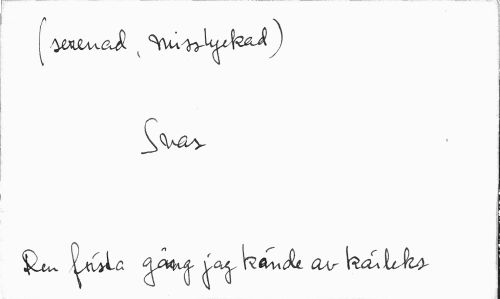 (serenad, misslyckad)
Svar
Den första gång jag kände av kärleks